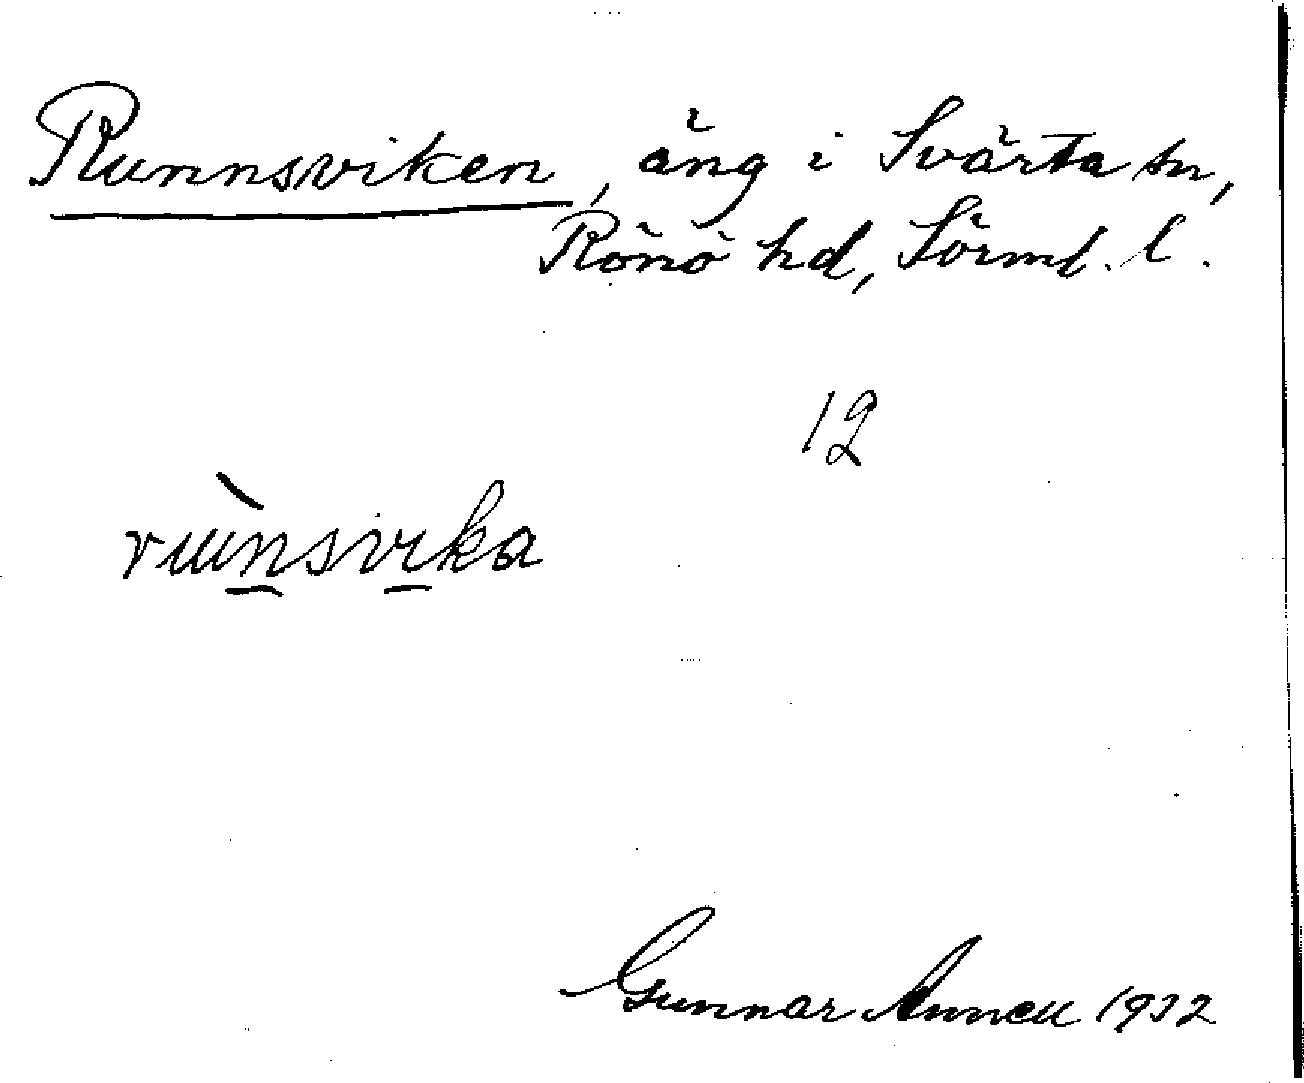 Runnsviken, äng i Svärta sn,
Rönö hd, Sörml. l.
12
runsvika
Gunnar Annell 1932